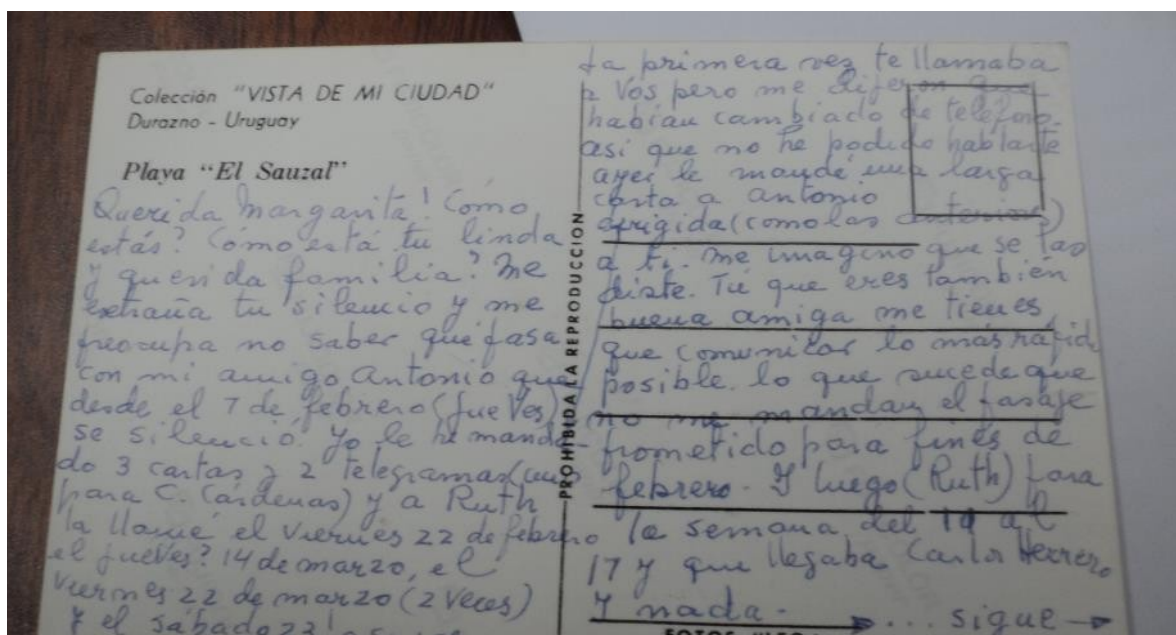 Colección "VISTA DE MI CIUDAD"
Durazno - Uruguay
Playa "El Sauzal"
Querida Margarita! Cómo
estás? Cómo está tu linda
y querida familia? Me
extraña tu silencio y me
preocupa no saber que pasa
con mi amigo Antonio que
desde el 7 de febrero (jueves)
se silenció. Yo le he manda-
do 3 cartas y 2 telegramas (uno
para C. Cárdenas) y a Ruth
la llamé el viernes 22 de febrero
el jueves? 14 de marzo, el
viernes 22 de marzo (2 veces)
y el sábado 23!
PROHIBIDA LA REPRODUCCION
La primera vez te llamaba
a Vós pero me dijeron que
habían cambiado de teléfono.
así que no he podido hablarte
ayer le mandé una larga
carta a Antonio
dirigida (como las anteriores)
a ti. me imagino que se las
diste. Tú que eres también
buena amiga me tienes
que comunicar lo más rápido
posible. lo que sucede que
no me mandan el pasaje
prometido para fines de
febrero. Y luego (Ruth) para
la semana del 10 al
17 y que llegaba Carlos Herrero
Y nada. ... sigue →
FOTOS